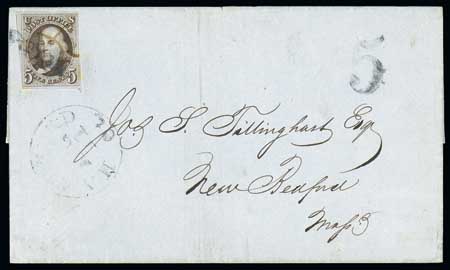 POST OFFICE
5 FIVE CENTS 5
5
Jos S. Tillinghast Esq
New Bedford
Mass